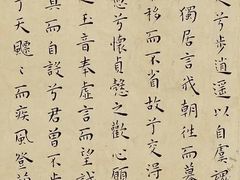 人兮步逍遙以自虞魂
獨居言我朝往而暮
移而不省故兮交得
兮懷貞愨之歡心願
之玉音奉虛言而望誠
而自設兮君曾不肯
兮天飄飄而疾風登蘭